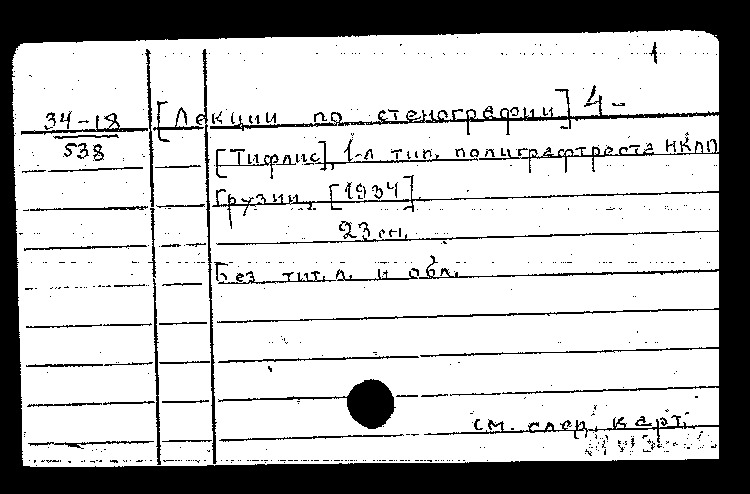 1
34-18
538
[Лекции по стенографии] 4-
[Тифлис], 1-л тип. полиграфтреста НКЛП
Грузии, [1934]
23 см.
Без тит. л. и обл.
см. след. карт.